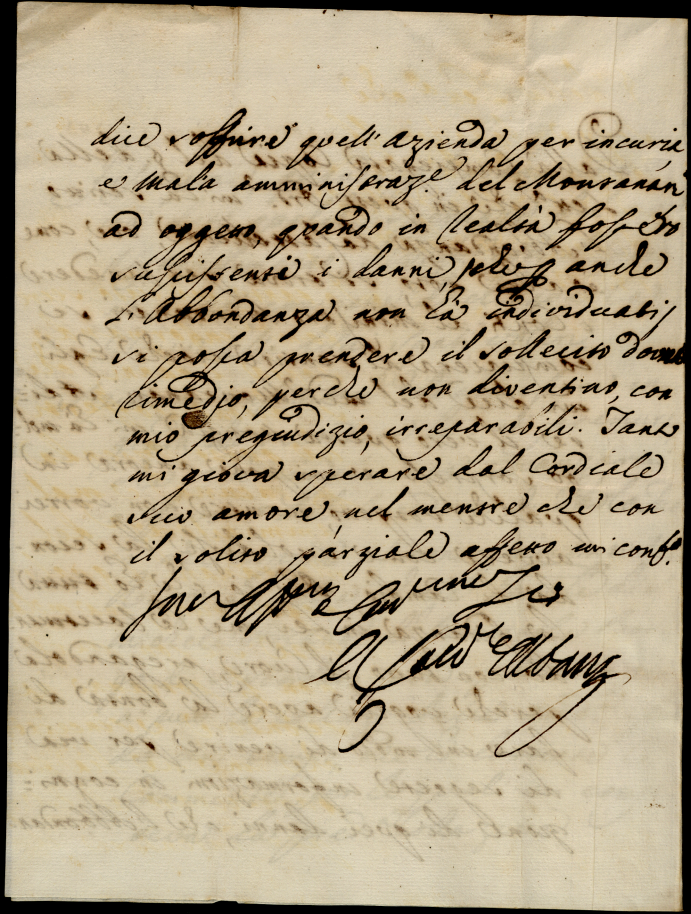 dice soffrire quell'Azienda per incuria,
e mala amministraz.e del Montanari
ad oggetto, quando in realtà fossero
sussistenti i danni, anche
l'Abbondanza non hà individuati,
si possa prendere il sollecito dovuto
rimedio, perche non diventino, con
mio pregiudizio, irreparabili. Tanto
mi giova sperare dal Cordiale
suo amore, nel mentre che con
il solito parziale affetto mi conf.o
Suo Aff.mo e
Il Card. Albani